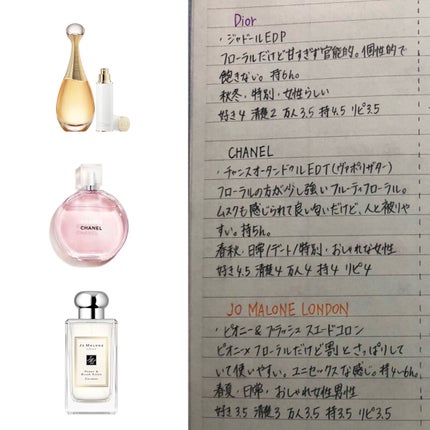 CHANEL
CHANCE
JO MALONE
LONDON
PEONY &
BLUSH SUEDE
COLOGNE
Dior
・ジャドールEDP
フローラルだけど甘すぎず官能的。個性的で
飽きない。持6h。
秋冬・特別・女性らしい
好き4 清楚2 万人3.5 持4.5 リピ3.5
CHANEL
・チャンスオータンドゥルEDT(ヴァポリザター)
フローラルの方が少し強いフルーティフローラル。
ムスクも感じられて良い匂いだけど、人と被りや
すい。持5h。
春秋・日常/デート/特別・おしゃれな女性
好き4.5 清楚4 万人4 持4 リピ4
JO MALONE LONDON
・ピオニー&ブラッシュスエードコロン
ピオニー×フローラルだけど割とさっぱりして
いて使いやすい。ユニセックスな感じ。持4~6h。
春夏・日常・おしゃれ女性男性
好き3.5 清楚3 万人3.5 持3.5 リピ3.5